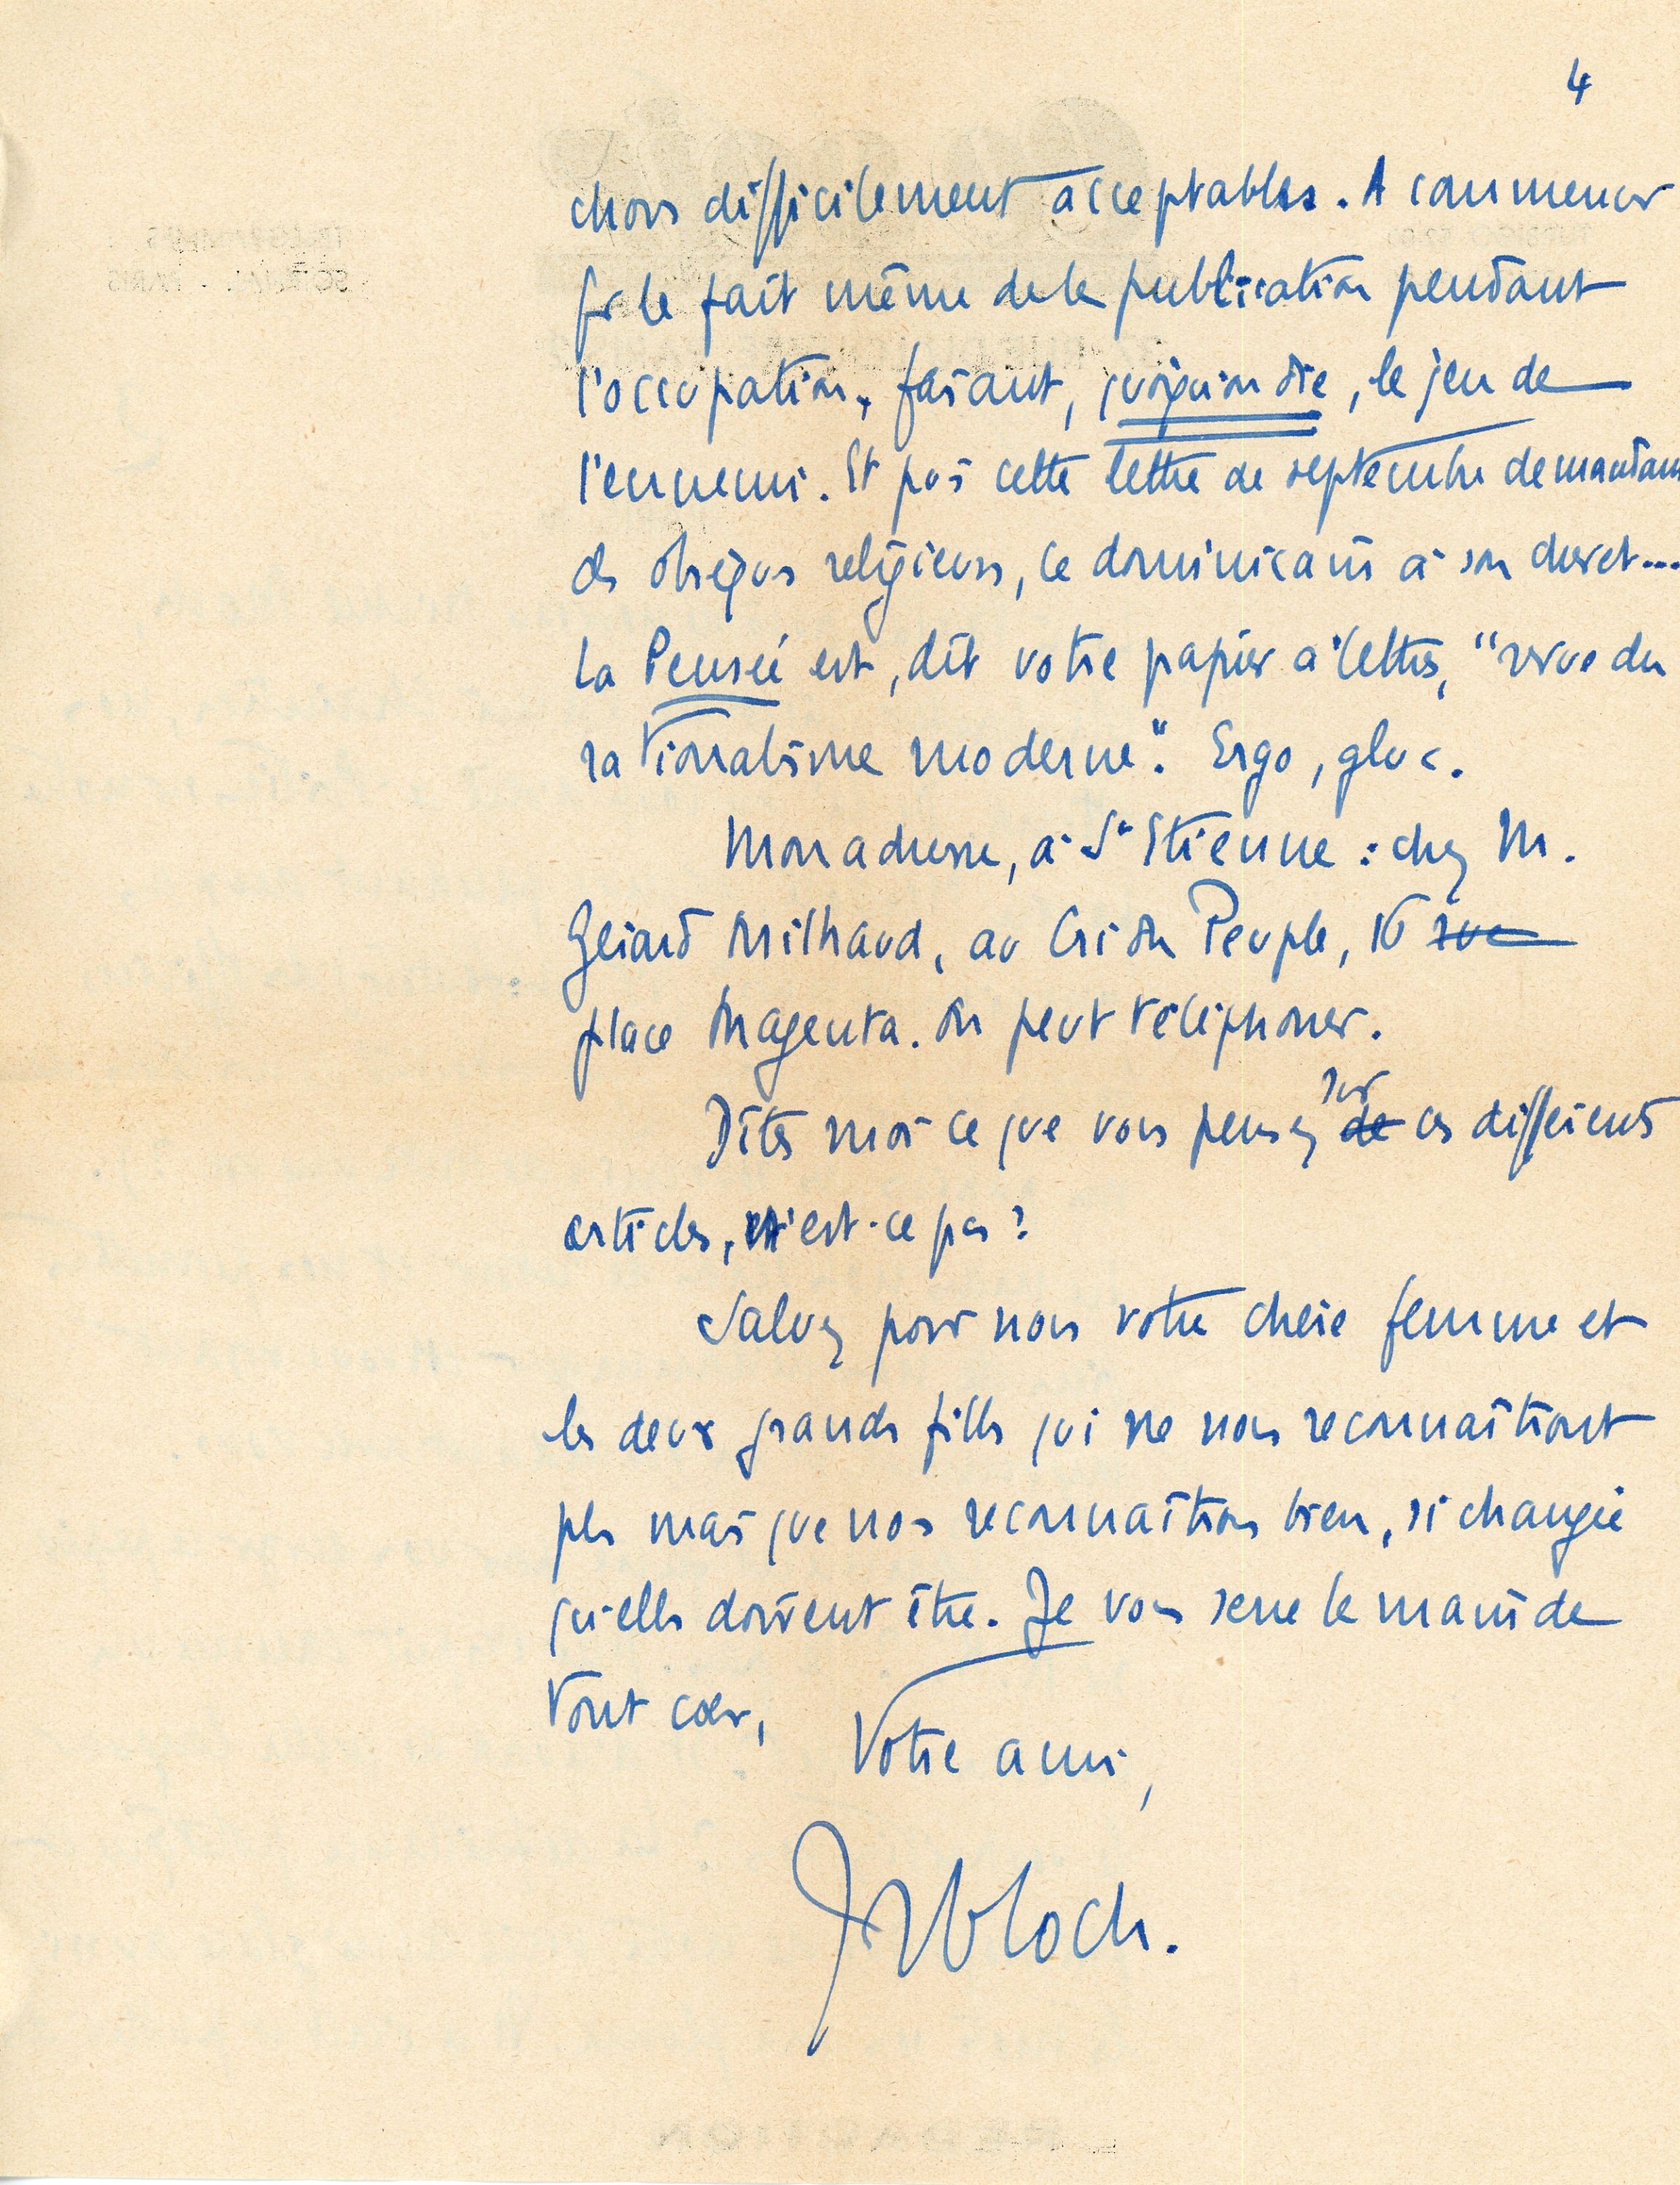 4
choses difficilement acceptables. A commencer
par le fait même de la publication pendant
l'occupation, faisant, quoiqu'on die, le jeu de
l'ennemi. Et puis cette lettre de septembre demandant
des obsèques religieuses, ce dominicain à son chevet...
La Pensée est, dit votre papier à lettres, "revue du
rationalisme moderne". Ergo, gluc.
Mon adresse, à St Etienne : chez M.
Gérard Milhaud, au Cri du Peuple, 16 rue
place Magenta. On peut téléphoner.
Dites moi ce que vous pensez de sur ces différents
articles, n'est-ce pas ?
Saluez pour nous votre chère femme et
les deux grandes filles qui ne nous reconnaîtront
plus mais que nous reconnaîtrons bien, si changées
qu'elles doivent être. Je vous serre la main de
tout cœur,
Votre ami,
JRBloch.